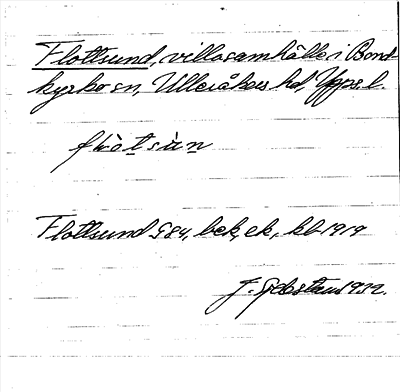 Flottsund, villasamhälle i Bond-
kyrko sn, Ulleråkers hd, Upps. l.
flo̊t̠sùn̠
Flottsund G 84, bek, ek, kb 1919
J. 1932.